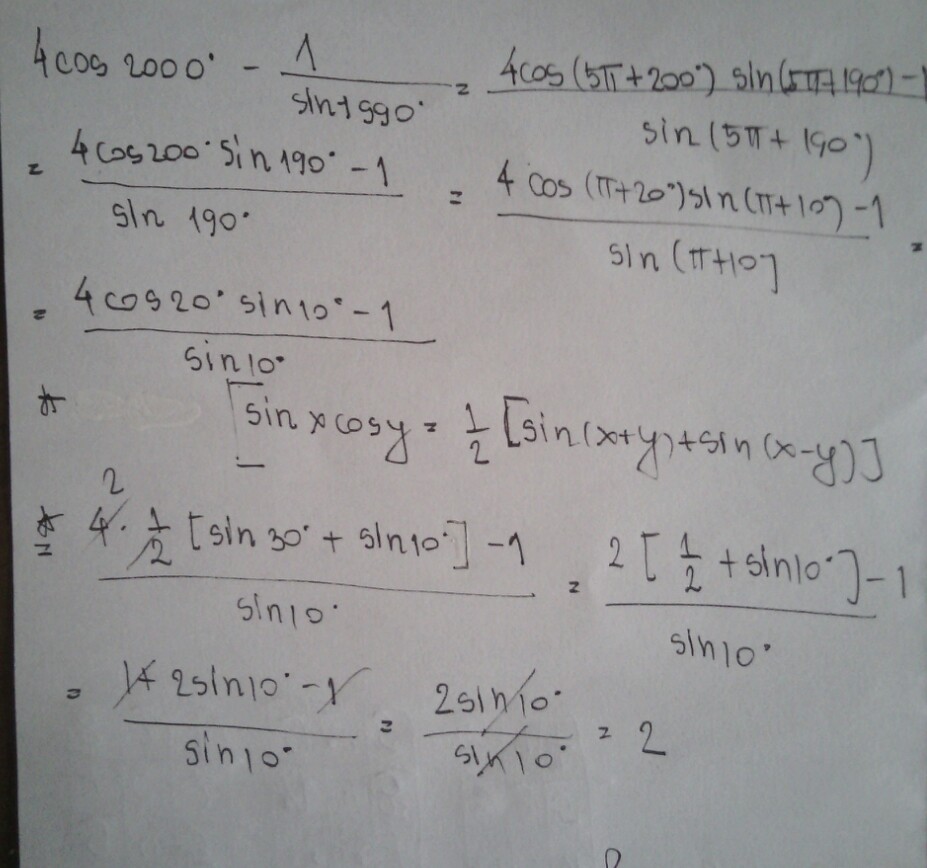 4cos 2000° - 1/sin1990° = (4cos(5π+200°) sin(5π+190°) - 1)/sin(5π+190°)
= (4cos200° sin190° - 1)/sin 190° = (4 cos(π+20°)sin(π+10°) - 1)/sin(π+10°) =
= (4cos20° sin10° - 1)/sin10°
* [sin x cos y = 1/2 [sin(x+y)+sin(x-y)]
2
* = (4 · 1/2 [sin 30° + sin10°] - 1)/sin10° = (2 [1/2 + sin10°] - 1)/sin10°
= (1+ 2sin10° - 1)/sin10° = 2sin10°/sin10° = 2